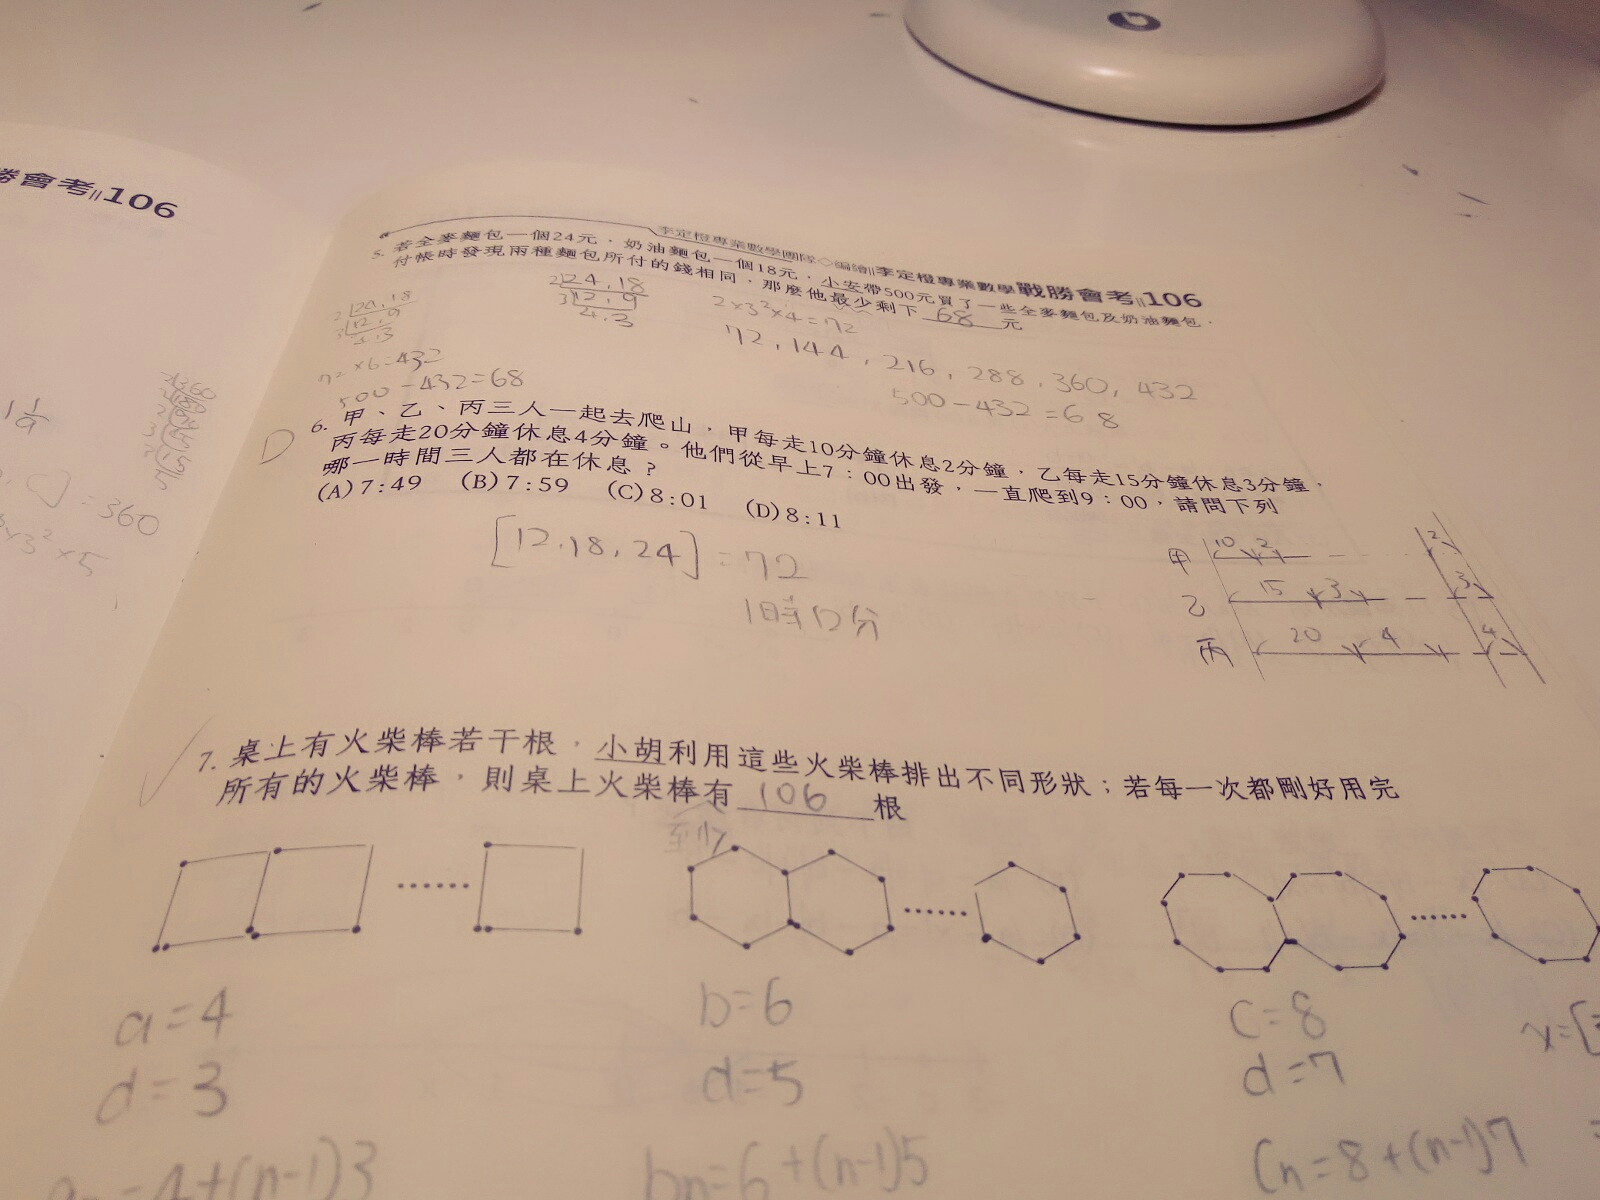 勝會考||106
李定橙專業數學團隊◇編繪||李定橙專業數學戰勝會考||106
5. 若全麥麵包一個24元，奶油麵包一個18元，小安帶500元買了一些全麥麵包及奶油麵包，
付帳時發現兩種麵包所付的錢相同，那麼他最少剩下 68 元
2 24,18
3 12,9
4.3
2 24,18
3 12,9
4.3
2×3²×4=72
72,144,216,288,360,432
500-432=68
72×6=432
500-432=68
1 1/9
=360
×3²×5
D
6. 甲、乙、丙三人一起去爬山，甲每走10分鐘休息2分鐘，乙每走15分鐘休息3分鐘，
丙每走20分鐘休息4分鐘。他們從早上7：00出發，一直爬到9：00，請問下列
哪一時間三人都在休息？
(A)7:49 (B)7:59 (C)8:01 (D)8:11
[12,18,24]=72
1時12分
甲 10 2 2
乙 15 3 3
丙 20 4 4
7. 桌上有火柴棒若干根，小胡利用這些火柴棒排出不同形狀；若每一次都剛好用完
所有的火柴棒，則桌上火柴棒有 106 根
至少
a=4
d=3
an=4+(n-1)3
b=6
d=5
bn=6+(n-1)5
c=8
d=7
Cn=8+(n-1)7